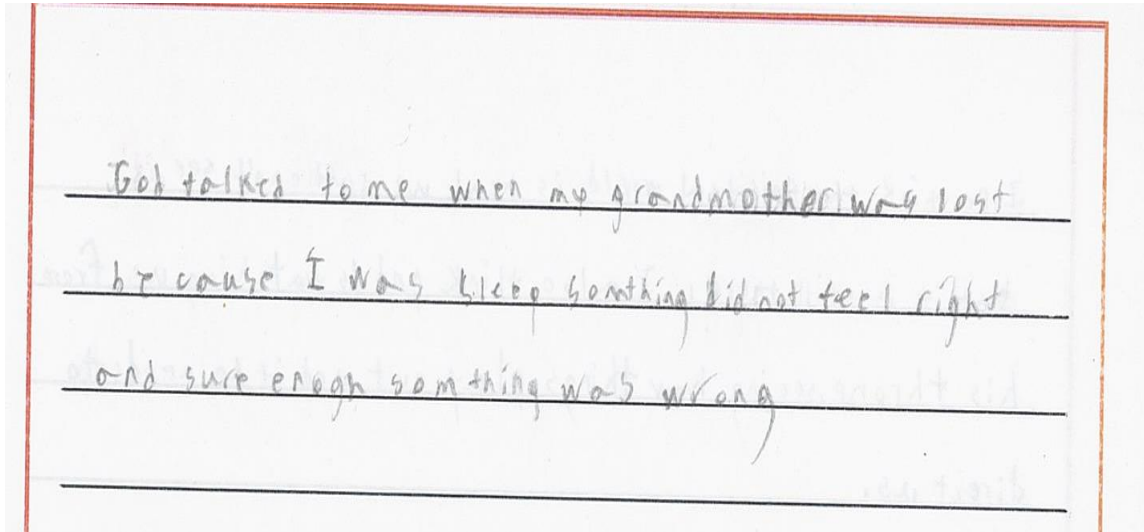 God talked to me when my grandmother was lost
because I was sleep somthing did not feel right
and sure enogh somthing was wrong